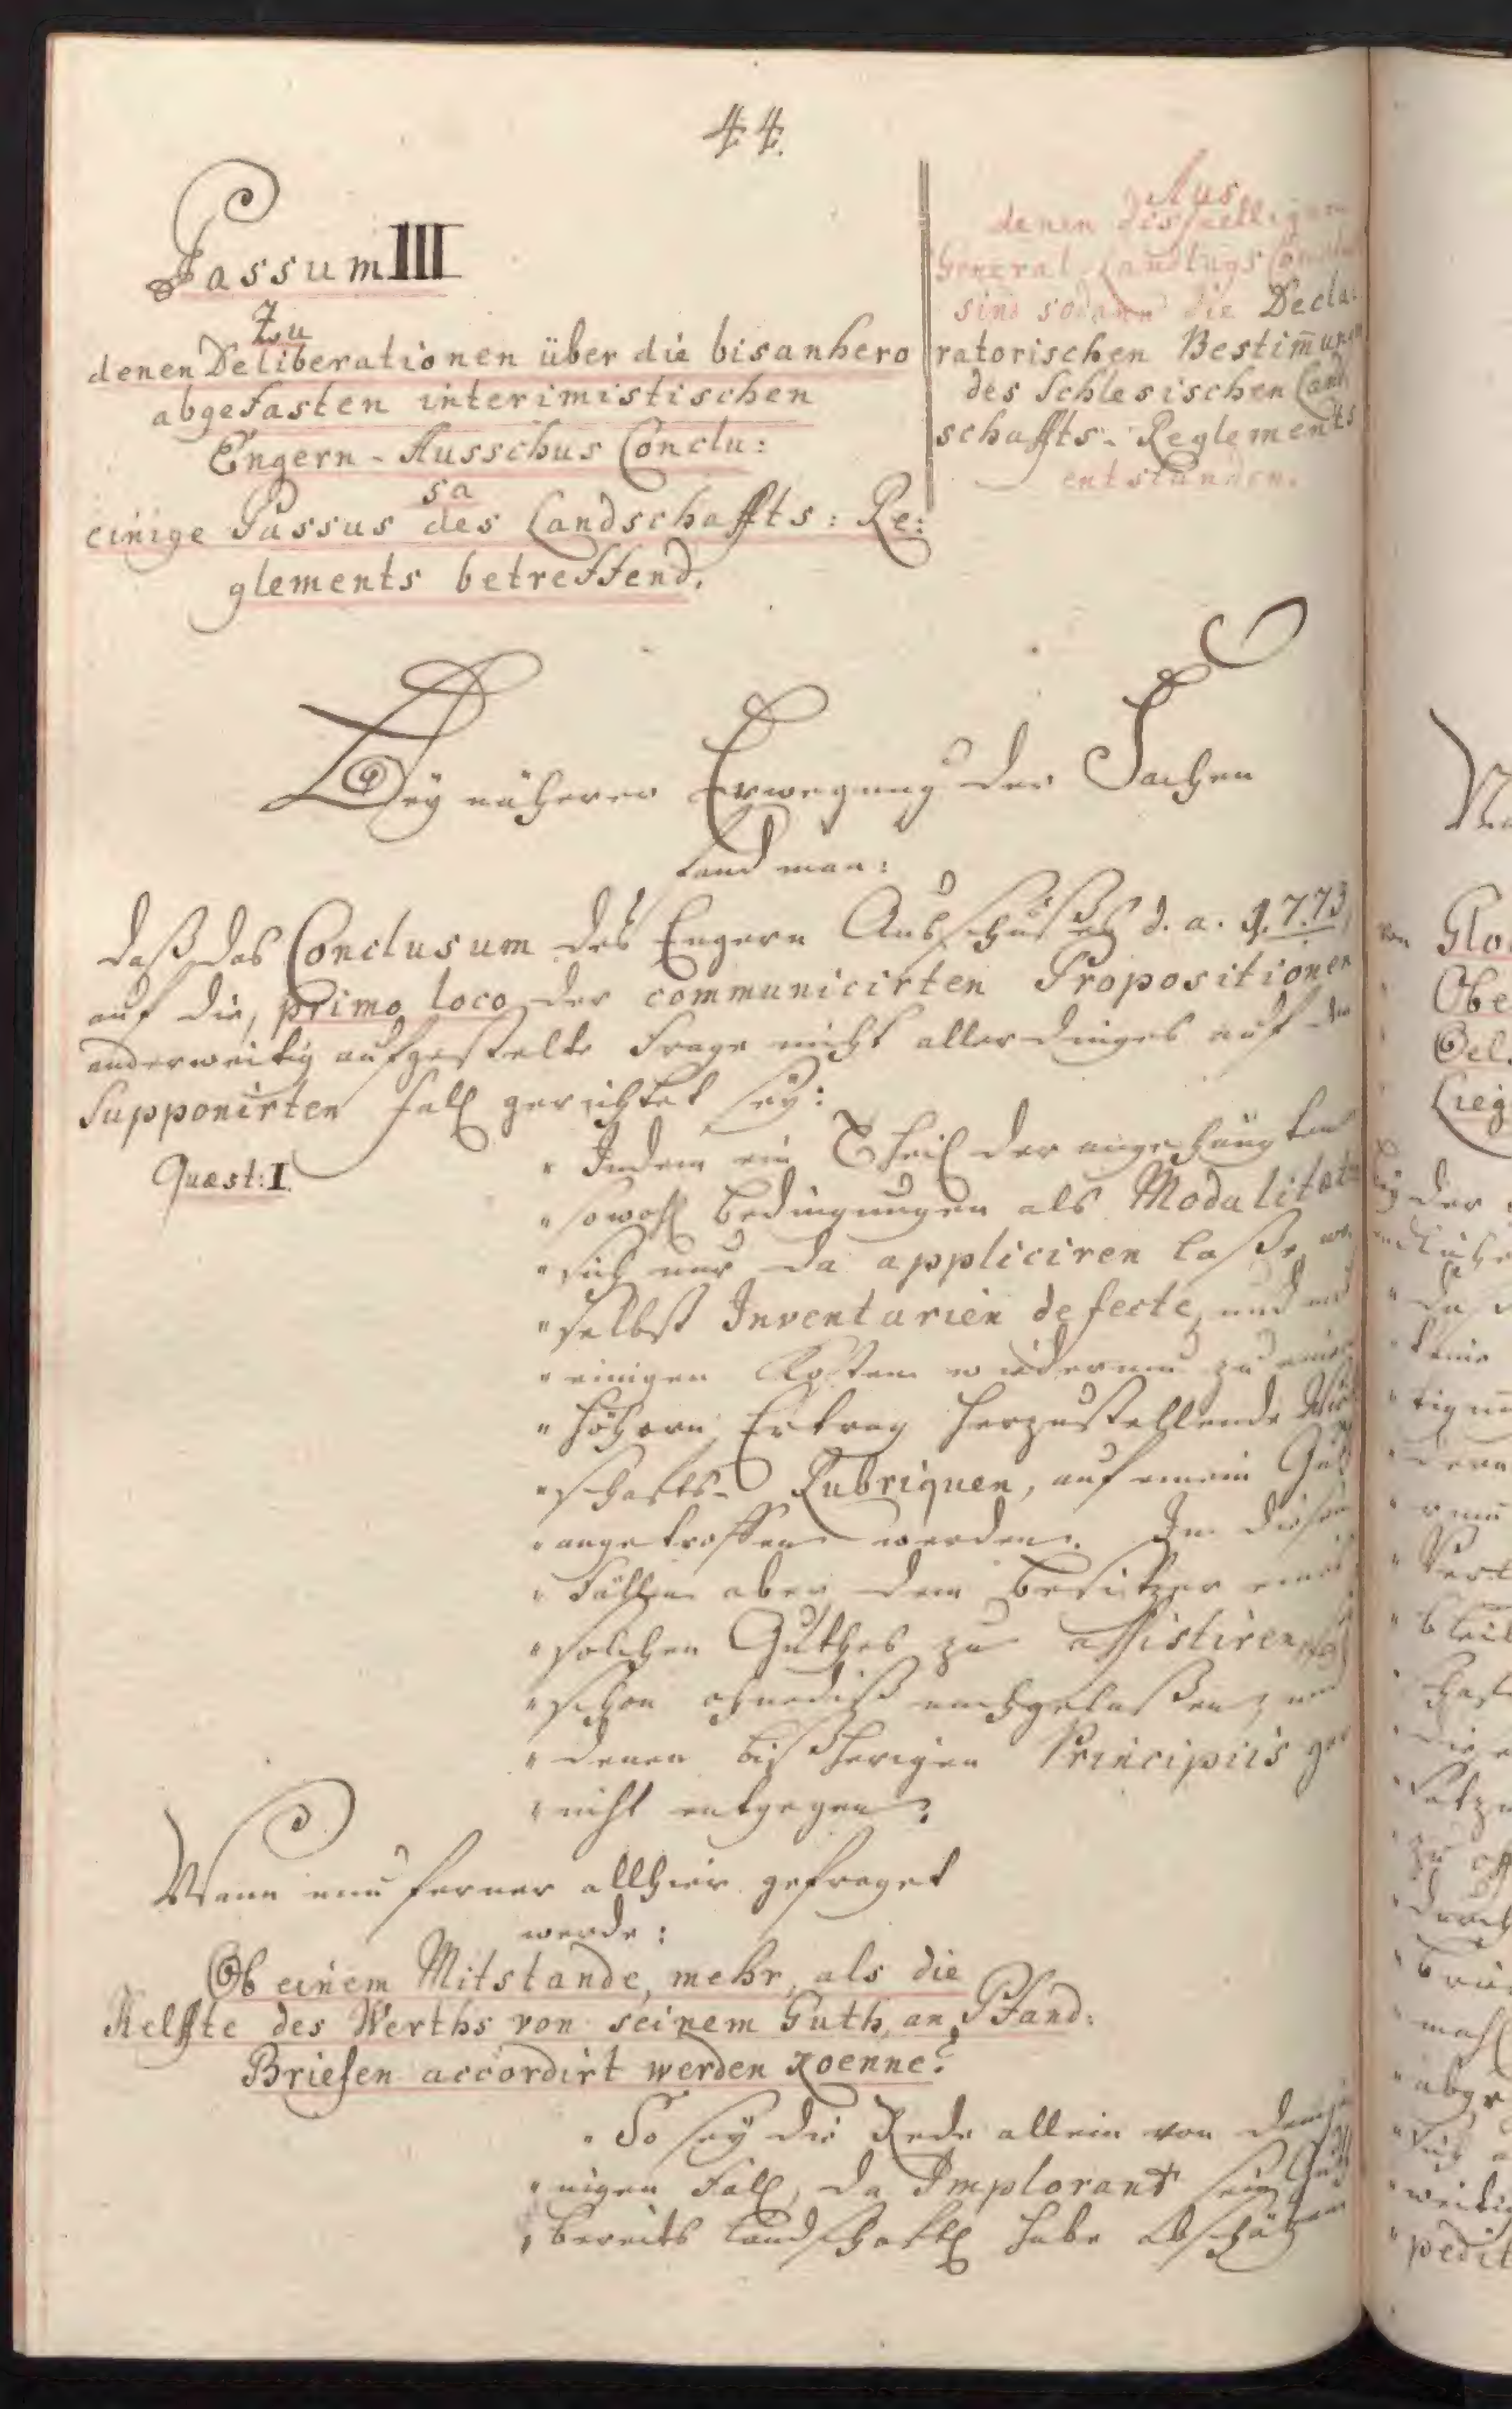 44.
Passum III
Zu
denen Deliberationen über die bisanhero
abgefasten interimistischen
Engern-Ausschus Conclu:
sa
einige Passus des Landschaffts: Re:
glements betreffend.
Aus
denen diesfälligen
General Landtags
sind sodann die Decla:
ratorischen Bestim̄ungen
des Schlesischen Land
schaffts-Reglements
entstanden.
Bey näherer Erwegung der Sachen
fand man:
daß das Conclusum des Engern Ausschußes d. a. 1773,
auf die, primo loco der communicirten Propositionen
anderweitig aufgestelte Frage nicht allerdinges auf den
supponirten Fall gerichtet sey:
Quæst: I.
" Indem ein Theil der angehängten
" sowohl Bedingungen als Modalitæten
" sich nur da appliciren laße, wo
" selbst Inventarien defecte, und mit
" einigen Kosten wiederum zu einem
" höhern Ertrag herzustellende Wirth
" schafts-Rubriquen, auf einem Guth
" angetroffen werden. In diesen
" Fällen aber, dem Besitzer eines
" solchen Guthes zu assistiren, sey
" schon ohnediß nachgelaßen, und
" denen bisherigen Principiis gar
" nicht entgegen.
Wann nun ferner allhier gefraget
werde:
Ob einem Mitstande, mehr, als die
Helffte des Werths von seinem Guth, an Pfand:
Briefen accordirt werden koenne?
" So sey die Rede allein von demje
" nigen Fall, da Implorant sein Guth
" bereits landschaftl habe abschätzen